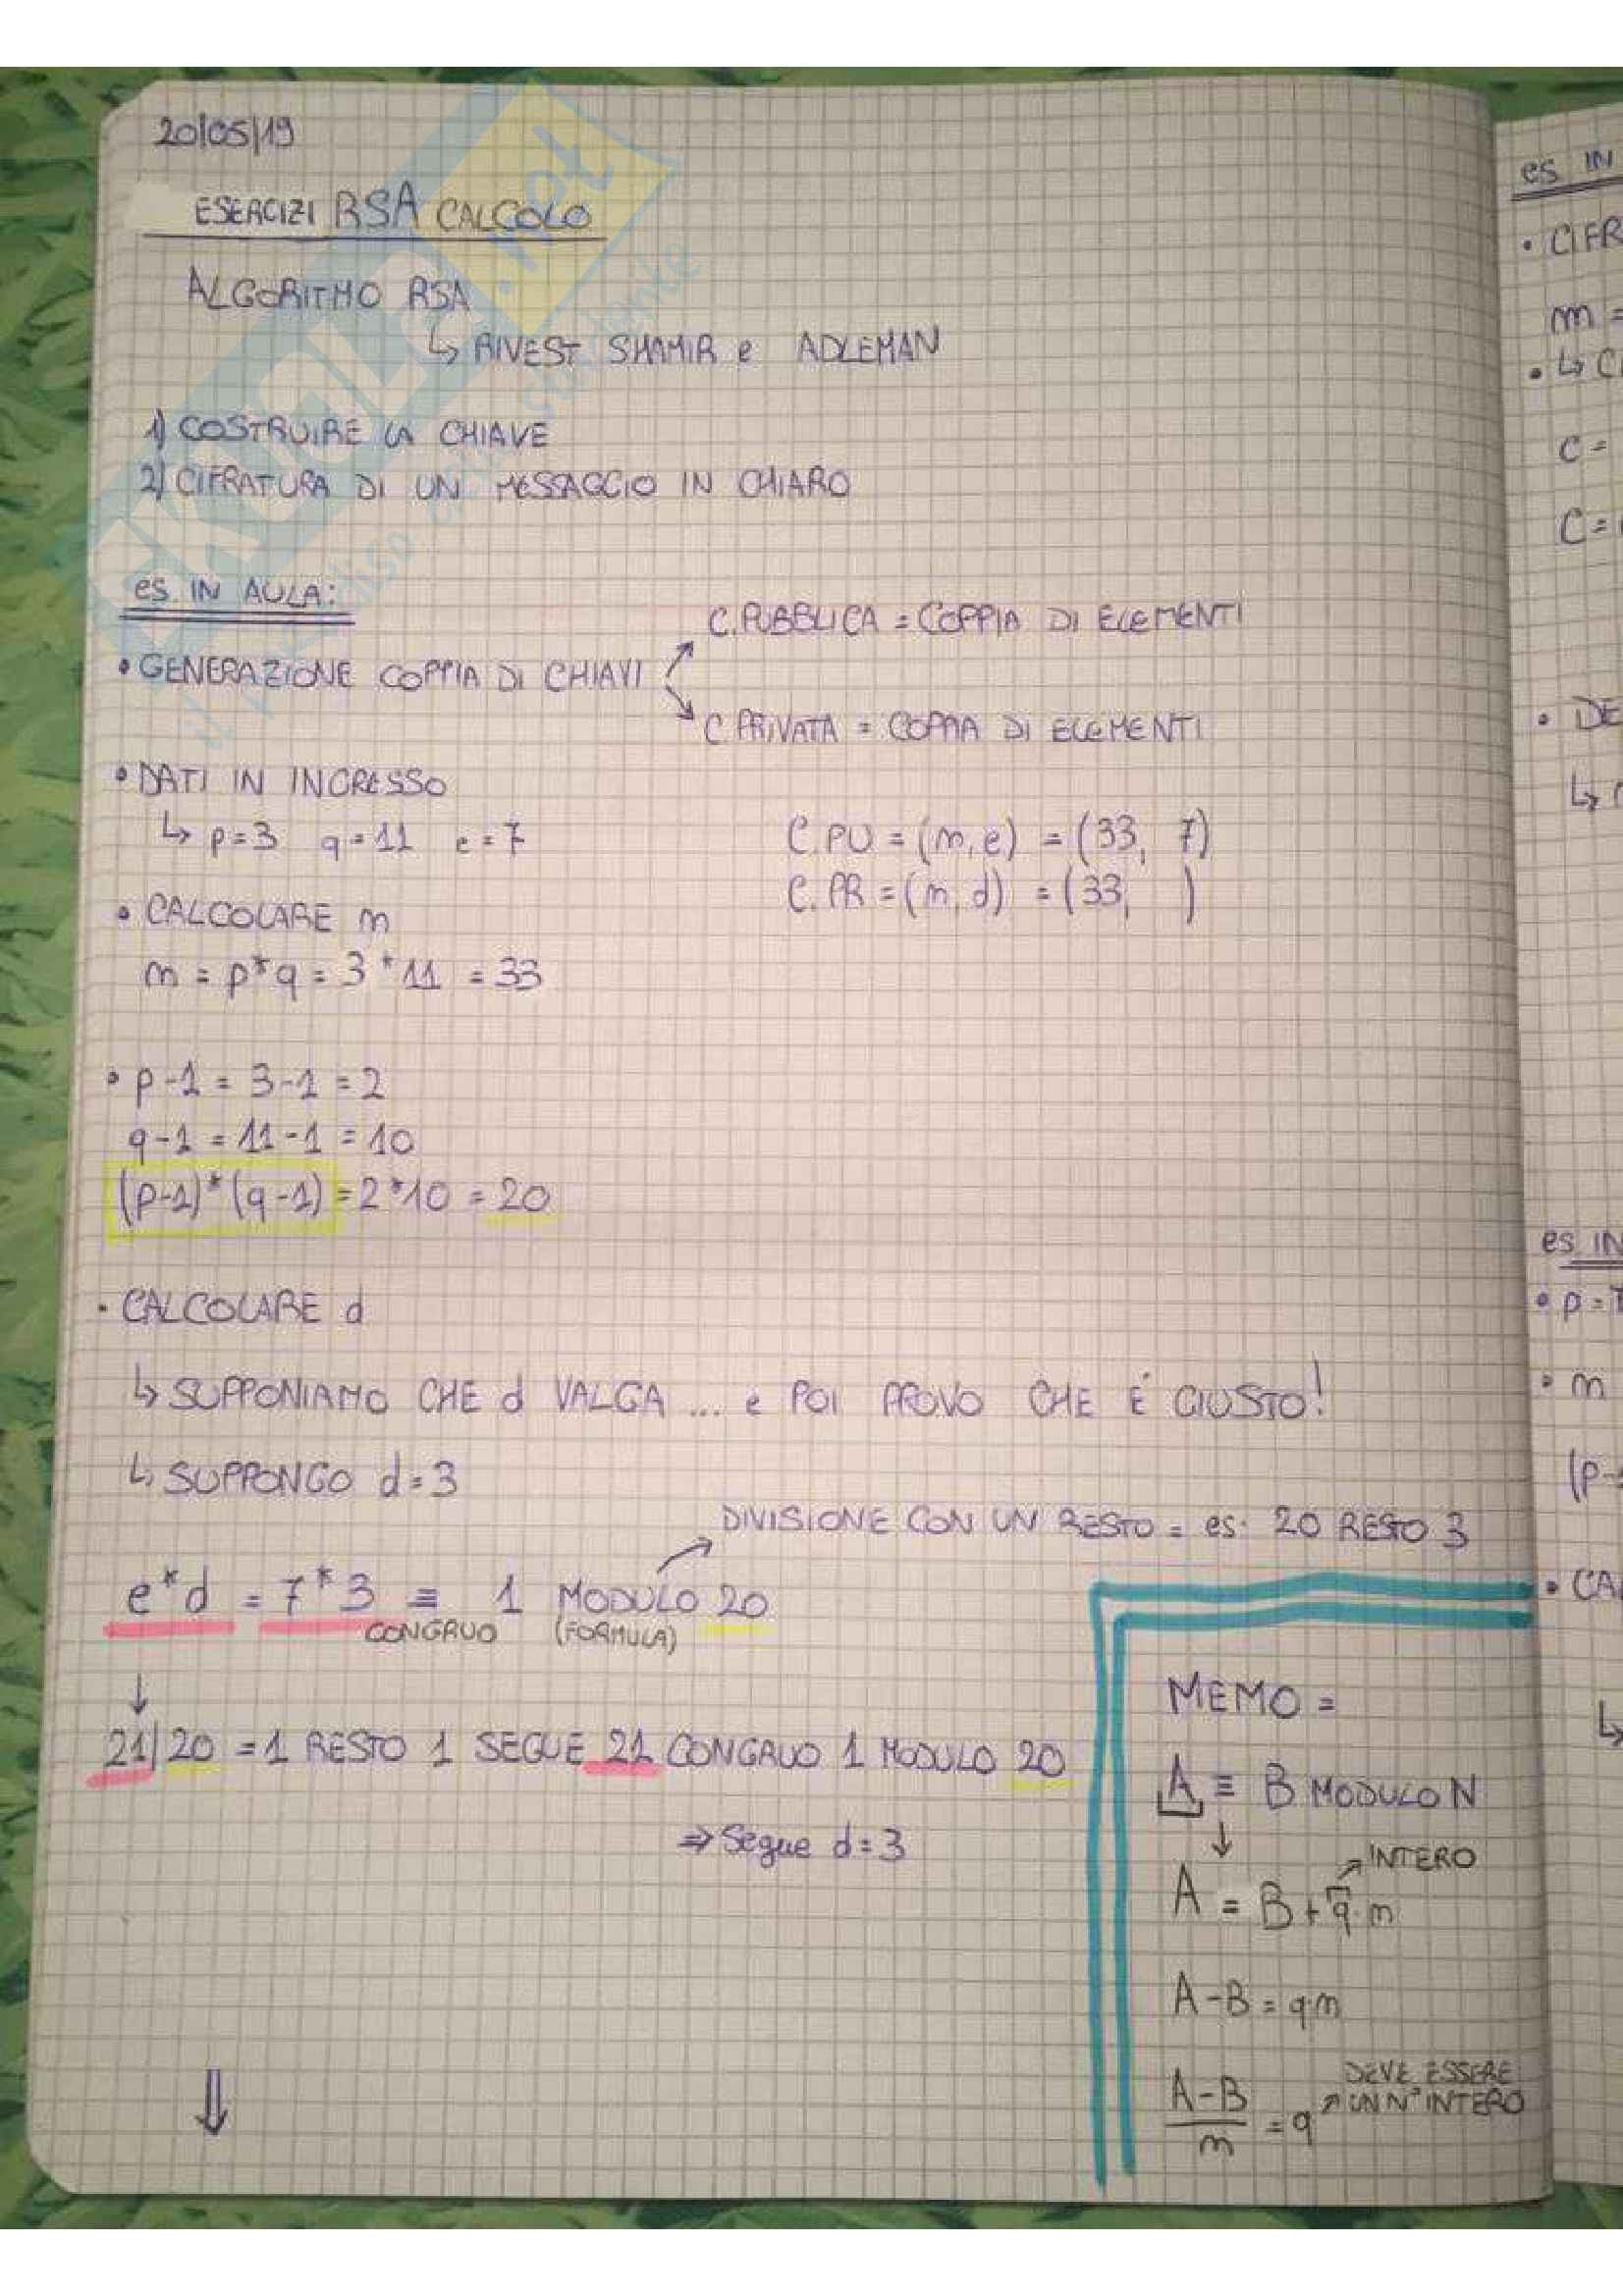 20/05/19
ESERCIZI RSA CALCOLO
ALGORITMO RSA
↳ RIVEST SHAMIR e ADLEMAN
1) COSTRUIRE LA CHIAVE
2) CIFRATURA DI UN MESSAGGIO IN CHIARO
es. IN AULA:
C. PUBBLICA = COPPIA DI ELEMENTI
• GENERAZIONE COPPIA DI CHIAVI
C. PRIVATA = COPPIA DI ELEMENTI
• DATI IN INGRESSO
↳ p=3 q=11 e=7
C.PU = (m, e) = (33, 7)
C.PR = (m, d) = (33, )
• CALCOLARE m
m = p*q = 3*11 = 33
• p-1 = 3-1 = 2
q-1 = 11-1 = 10
(p-1)*(q-1) = 2*10 = 20
• CALCOLARE d
↳ SUPPONIAMO CHE d VALGA ... e POI PROVO CHE É GIUSTO!
↳ SUPPONGO d=3
DIVISIONE CON UN RESTO = es. 20 RESTO 3
e*d = 7*3 ≡ 1 MODULO 20
CONGRUO (FORMULA)
↓
21/20 = 1 RESTO 1 SEGUE 21 CONGRUO 1 MODULO 20
⇒ Segue d=3
⇓
MEMO =
A ≡ B MODULO N
↓
INTERO
A = B + q·m
A-B = q·m
DEVE ESSERE
UN N° INTERO
A-B
/m = q
es IN
• CIFR
m =
• ↳ C
C =
C =
• DE
↳
es IN
• p = 7
• m
(p-
• CA
↳
SKUOLA.net
il paradiso dello studente